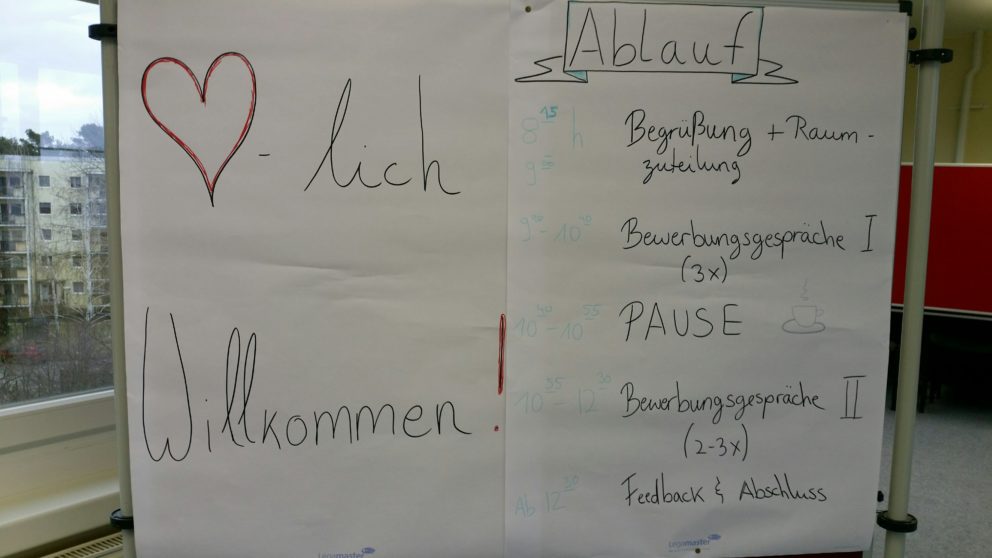 - lich
Willkommen!
Ablauf
8 15 h Begrüßung + Raum-
zuteilung
Bewerbungsgespräche I
(3x)
PAUSE
10 55 - 12 30 Bewerbungsgespräche II
(2-3x)
Ab 12 30 Feedback & Abschluss
Legamaster
Legamaster